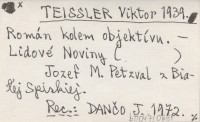 TEISSLER Viktor 1939.
Román kolem objektívu. —
Lidové Noviny (          )
Jozef M. Petzval z Bia-
łej Spiskiej.
Rec.: DANČO J. 1972.